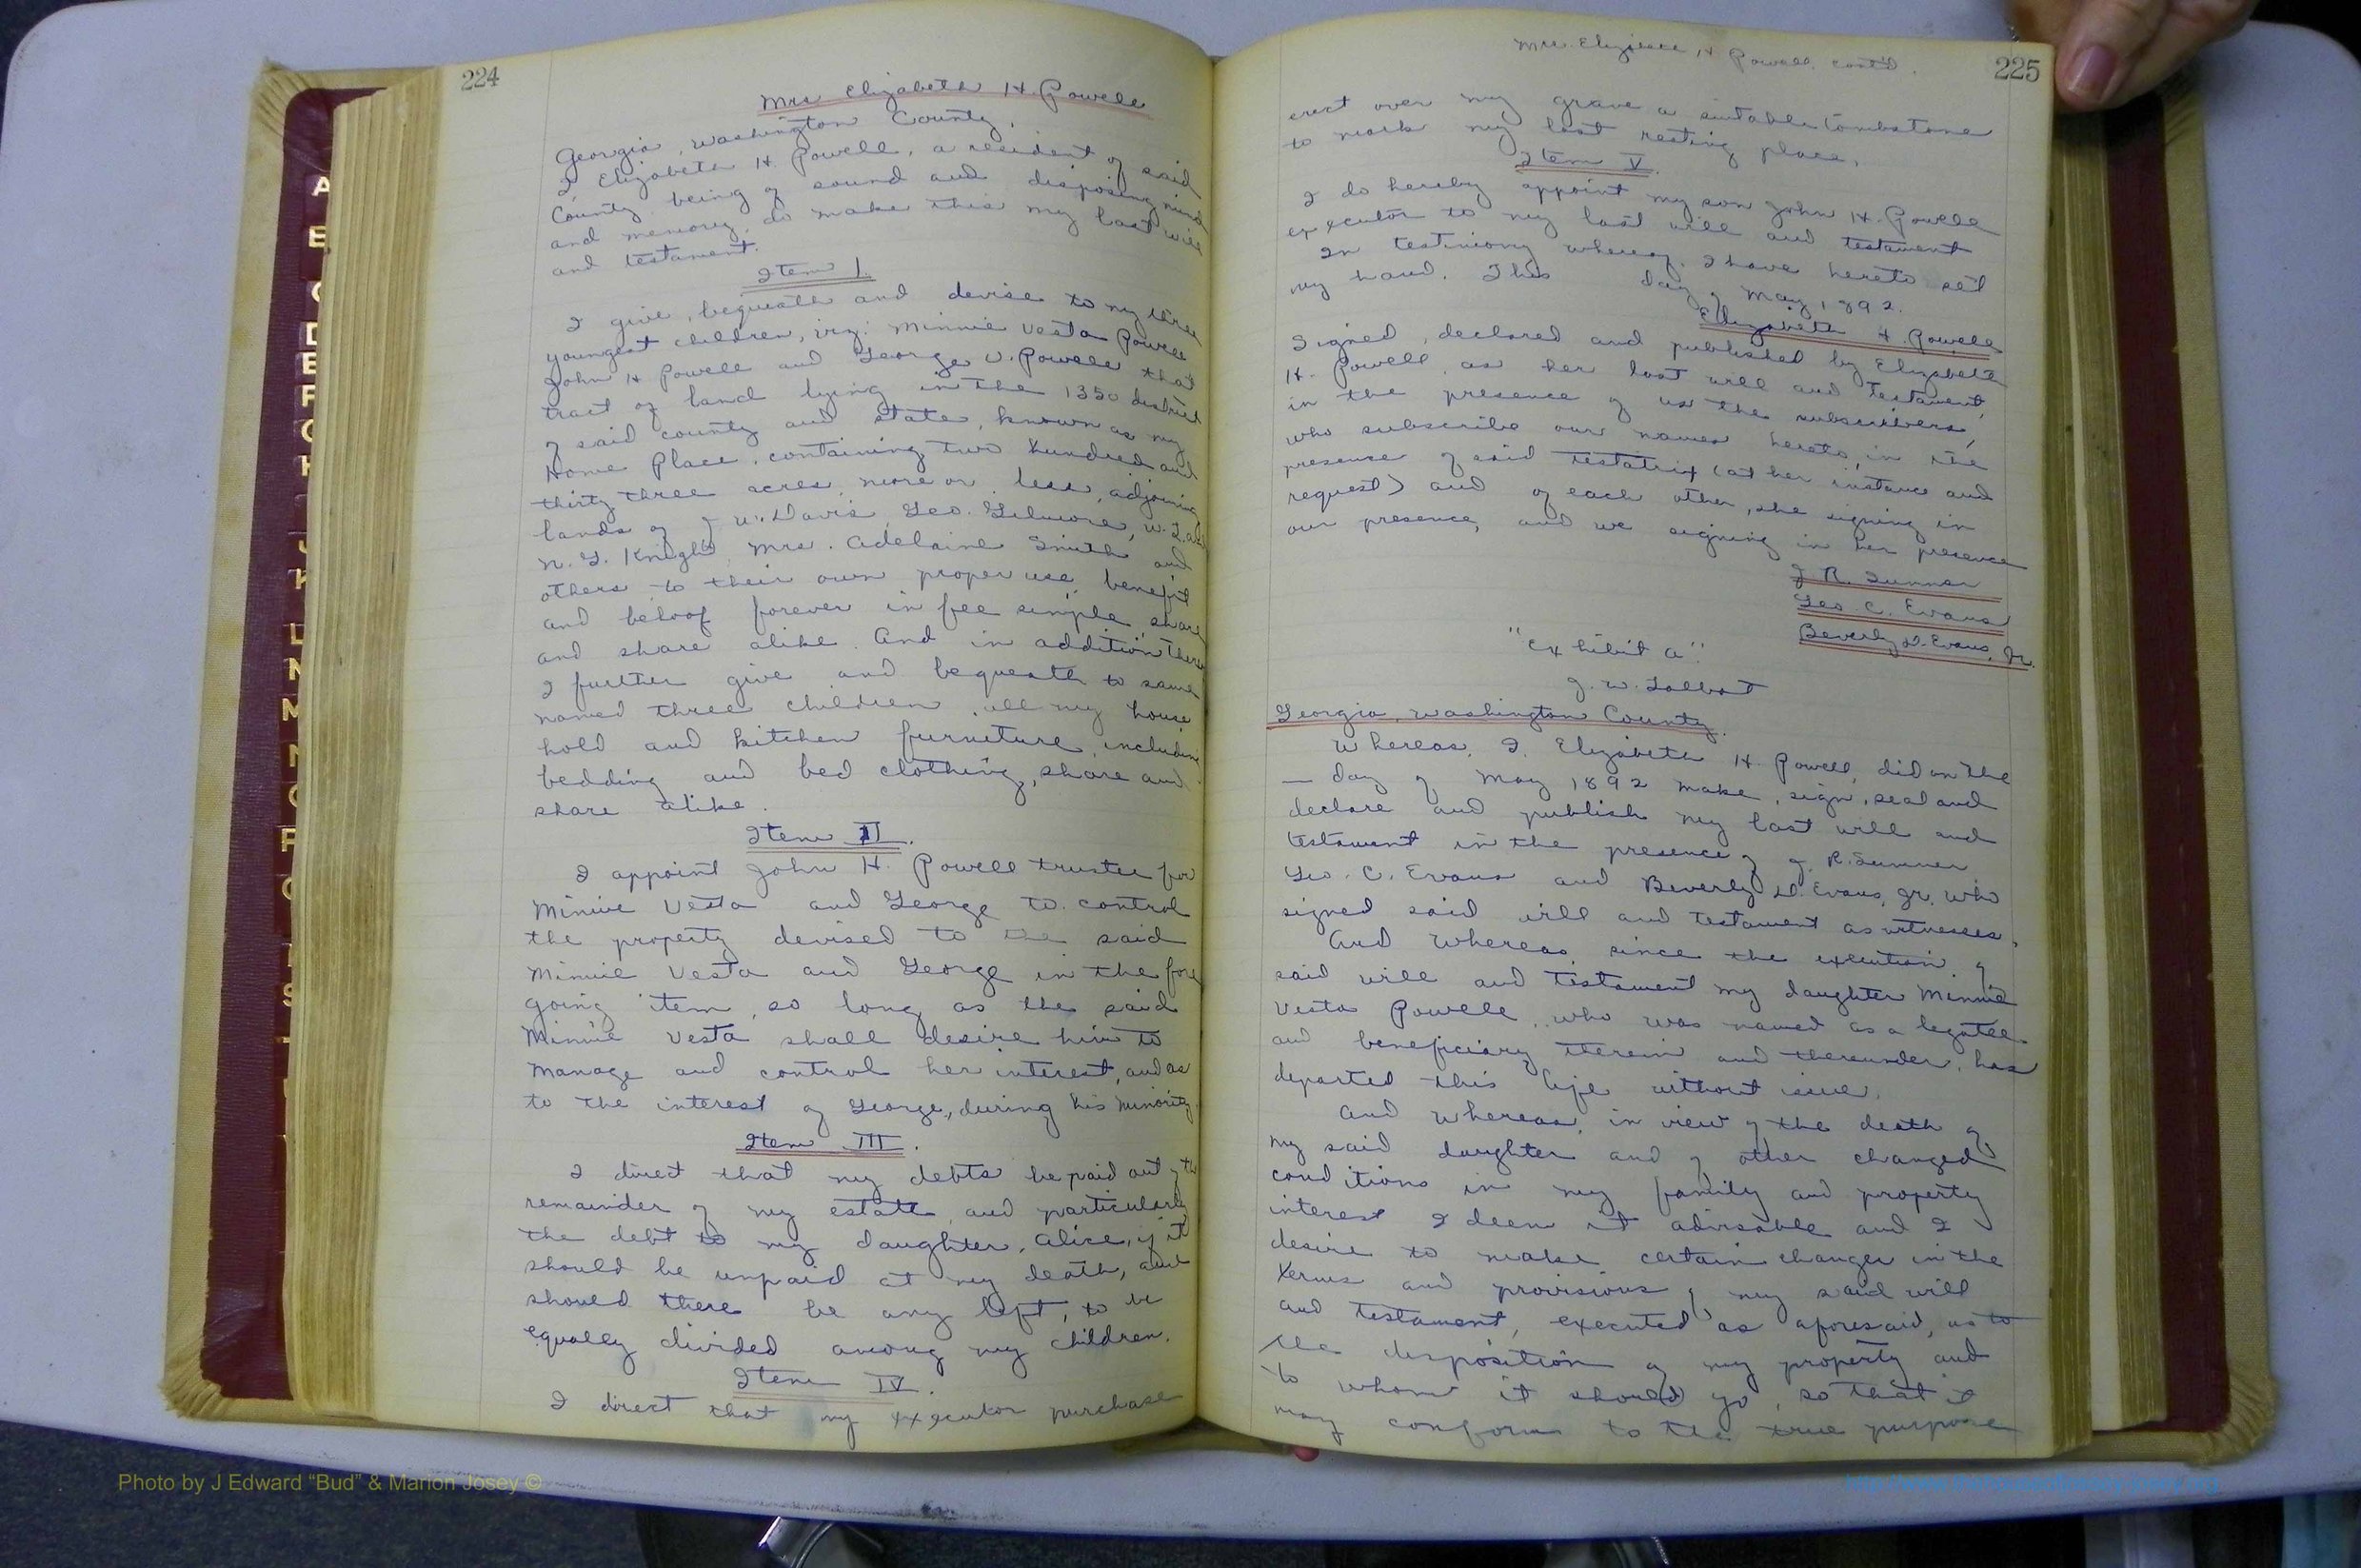 224
Mrs Elizabeth H. Powell
Georgia, Washington County.
I Elizabeth H. Powell, a resident of said
County being of sound and disposing mind
and memory, do make this my last will
and testament.
Item I.
I give, bequeath and devise to my three
youngest children, viz: Minnie Vesta Powell
John H Powell and George V. Powell that
tract of land lying in the 1350 district
of said county and state, known as my
Home Place, containing two hundred and
thirty three acres, more or less, adjoining
lands of J W. Davis, Geo. Gilmore, W. L. and
N. G. Knight, Mrs. Adelaine Smith and
others to their own proper use, benefit
and behoof forever in fee simple, share
and share alike. And in addition
I further give and bequeath to same
named three children, all my house
hold and kitchen furniture, including
bedding and bed clothing, share and
share alike.
Item II.
I appoint John H. Powell trustee for
Minnie Vesta and George to control
the property devised to the said
Minnie Vesta and George in the fore
going item, so long as the said
Minnie Vesta shall desire him to
manage and control her interest, and as
to the interest of George, during his minority.
Item III.
I direct that my debts be paid out of the
remainder of my estate, and particularly
the debt to my daughter, Alice, if it
should be unpaid at my death, and
should there be any left, to be
equally divided among my children.
Item IV.
I direct that my executor purchase
Mrs. Elizabeth H Powell cont'd.
225
erect over my grave a suitable tombstone
to mark my last resting place.
Item V.
I do hereby appoint my son John H. Powell
executor to my last will and testament
In testimony whereof, I have hereto set
my hand. This day of May, 1892.
Elizabeth H. Powell
Signed, declared and published by Elizabeth
H. Powell, as her last will and testament,
in the presence of us the subscribers,
who subscribe our names hereto, in the
presence of said testatrix (at her instance and
request) and of each other, she signing in
our presence, and we signing in her presence
J R. Sumner
Geo C. Evans
Beverly D. Evans, Jr.
"Exhibit A".
J. W. Talbot
Georgia, Washington County.
Whereas, I, Elizabeth H. Powell, did on the
— day of May 1892 make, sign, seal and
declare and publish my last will and
testament in the presence of J. R. Sumner
Geo. C. Evans and Beverly D. Evans, Jr. who
signed said will and testament as witnesses.
And Whereas, since the execution of
said will and testament my daughter Minnie
Vesta Powell, who was named as a legatee
and beneficiary therein and thereunder, has
departed this life without issue.
And whereas, in view of the death of
my said daughter and of other changed
conditions in my family and property
interest I deem it advisable and I
desire to make certain changes in the
terms and provisions of my said will
and testament, executed as aforesaid, as to
the disposition of my property and
to whom it should go, so that it
may conform to the true purpose
Photo by J Edward "Bud" & Marion Josey ©